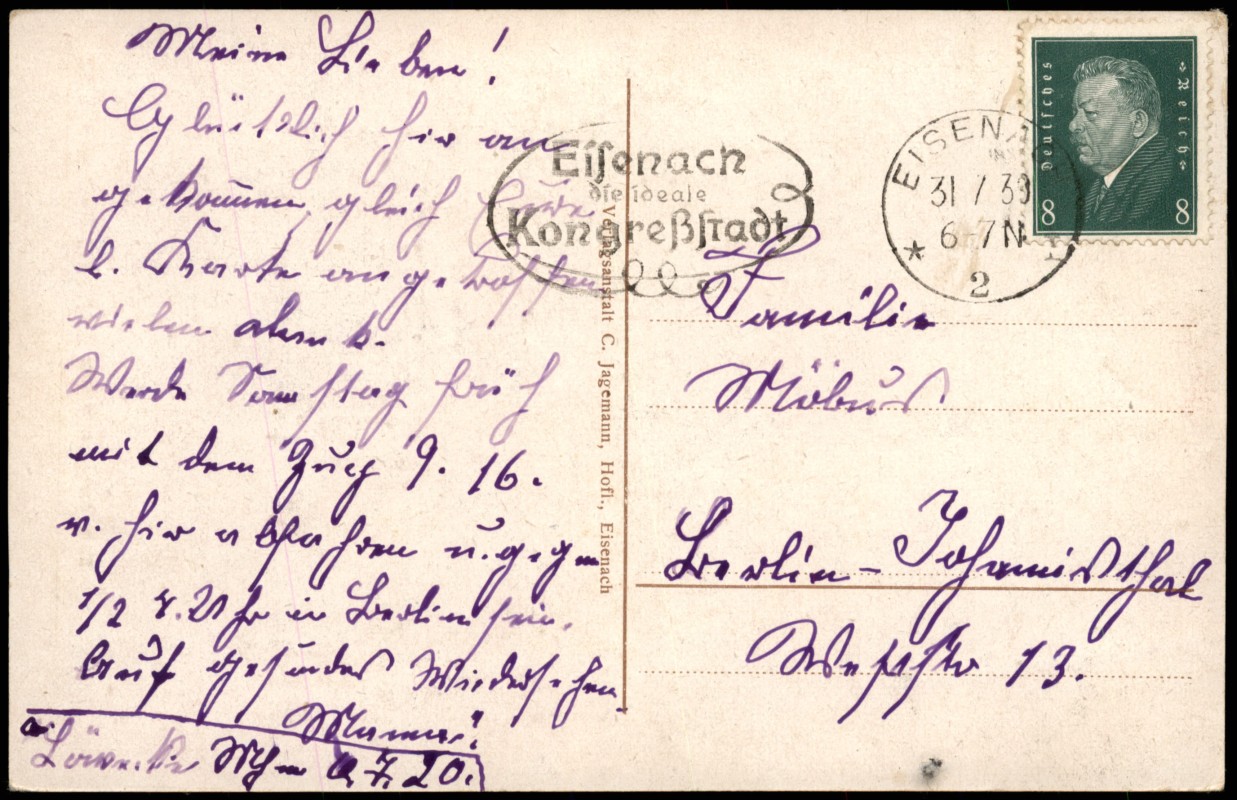 Meine Lieben!
Glücklich hir an
gekommen, gleich Eure
l. Karte angetroffen
vielen
Werde Samstag früh
mit dem Zug 9.16.
v. hir abfahren u. gegen
1/2 4. Uhr in Berlin sein.
Auf gesundes Wiedersehen
Mama.
20.
Eisenach
die ideale
Kongreßstadt
EISENACH
31 7 30
6-7 N
* 2
Deutsches Reich
8 8
Verlagsanstalt C. Jagemann, Hofl., Eisenach
Familie
Möbus
Berlin-Johannisthal
Wesfstr 13.